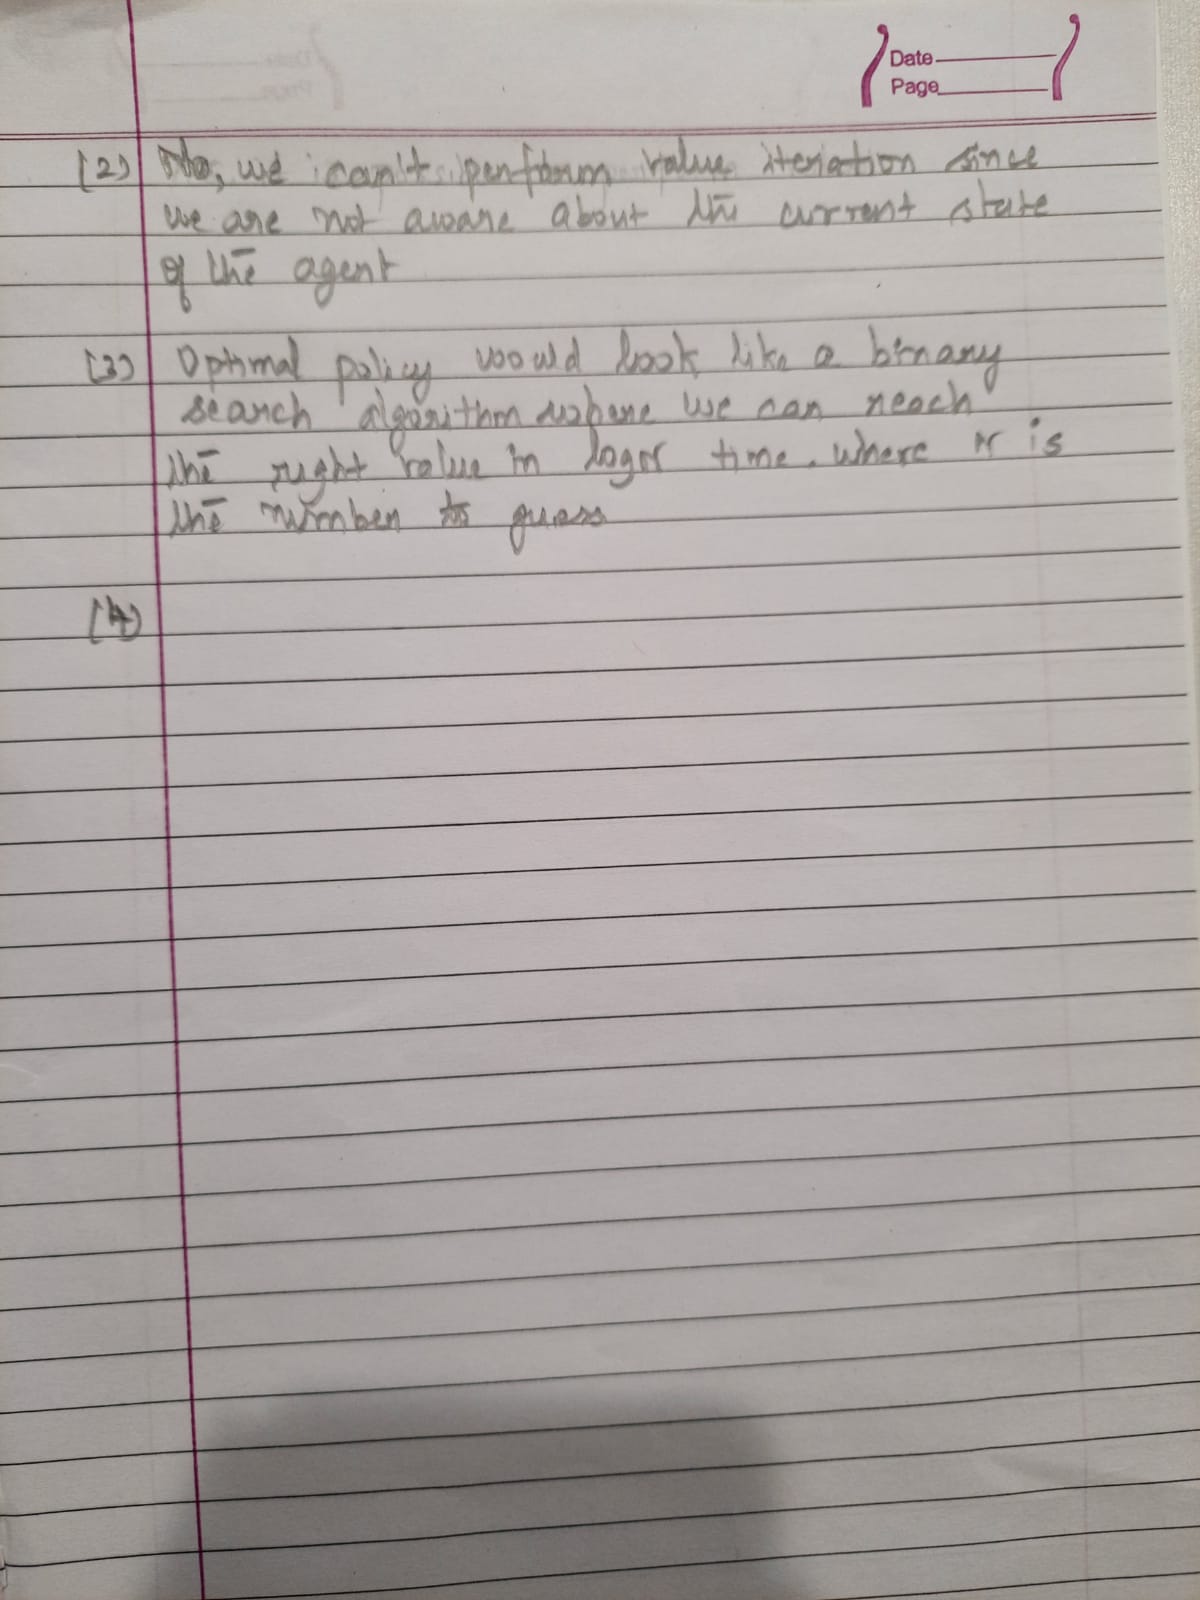 Date
Page
(2) No, we can't perform value iteration since
we are not aware about the current state
of the agent
(3) Optimal policy would look like a binary
search algorithm where we can reach
the right value in logn time. where n is
the number to guess
(4)